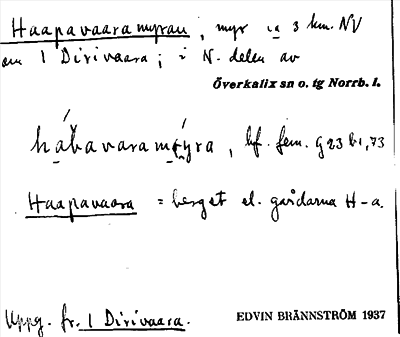 Haapavaaramyran, myr ca 3 km. NV
om 1 Dirivaara; i N. delen av
Överkalix sn o. tg Norrb. l.
hábavaramýra, bf. fem. g 23 b1, 73
Haapavaara = berget el. gårdarna H-a.
Uppg. fr. 1 Dirivaara.
EDVIN BRÄNNSTRÖM 1937